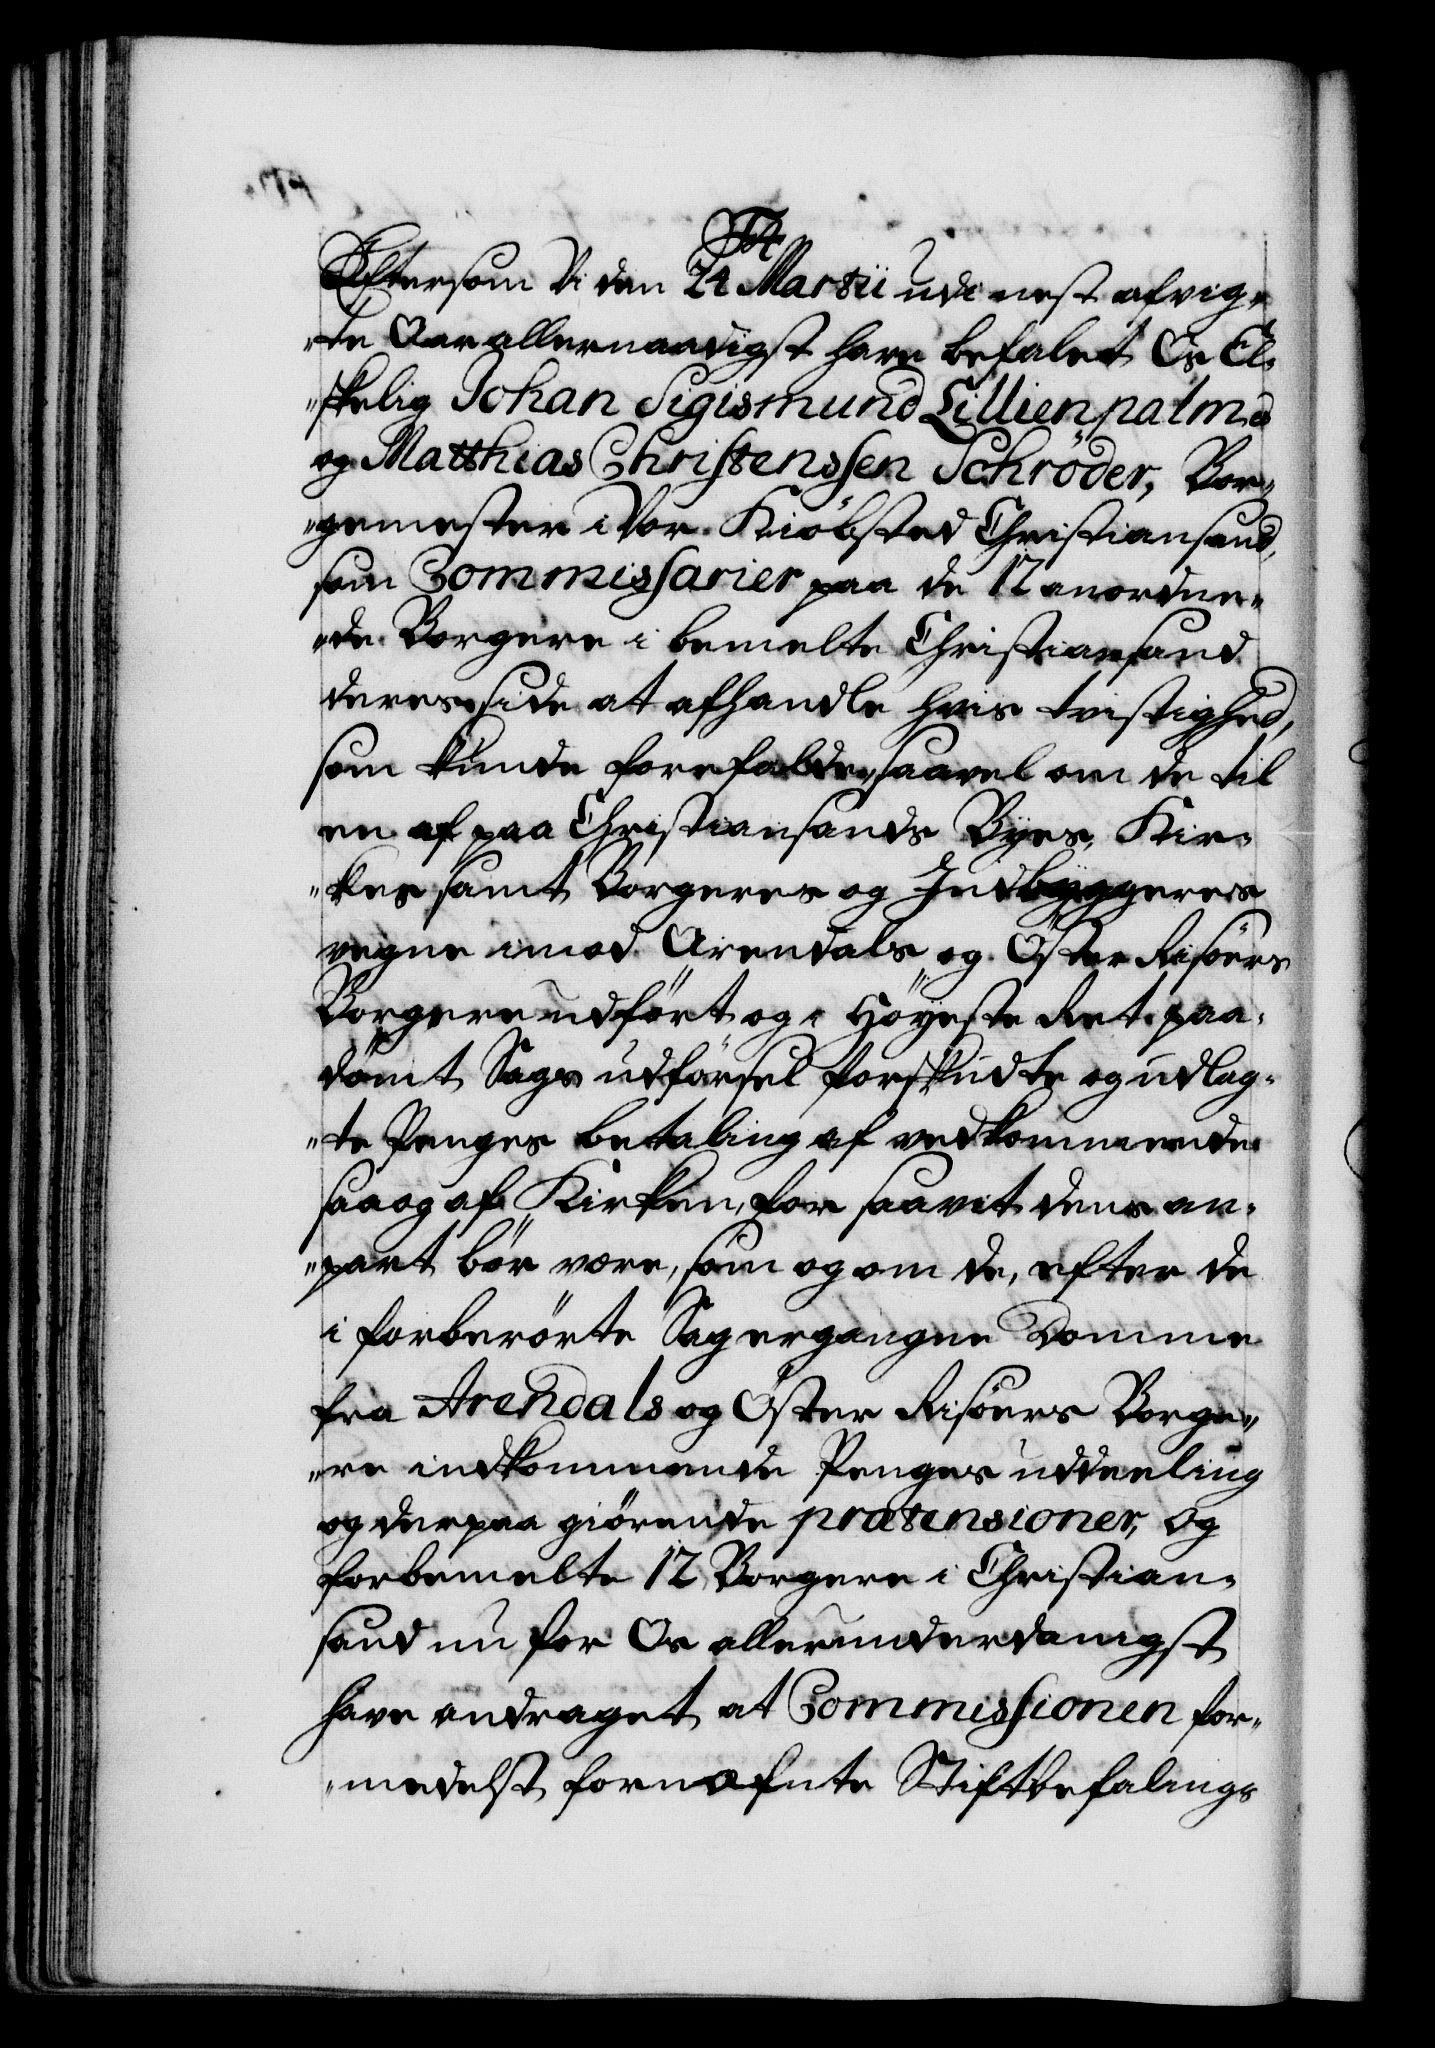 F4
Eftersom Vi den 24 Martii udi nest afvig-
"te Aar allernaadigst have befalet Os El-
"skelig Johan Sigismund Lillienpalm
og Matthias Christenssen Schröder, Bor-
"gemester i Vor Kiöbsted Christiansand,
som Commissarier paa de 12 anordne-
"de Borgere i bemelte Christiansand
deres side at afhandle hvis tvistighed,
som kunde forefalde, saavel om de til
en af paa Christiansands Byes, Kir-
"kes samt Borgeres og Indbyggeres
vegne imod Arendals og Öster Risöers
Borgere udfört og i Höyeste Ret paa-
dömt Sags udförsel forskudte og udlag-
"te Penges betaling af vedkommende
saa og af Kirken, for saavit dens an-
"part bör være, som og om de, efter de
i forberörte Sag ergangne Domme
fra Arendals og Öster Risöers Borge-
"re indkommende Penges uddeeling
og derpaa giörende prætensioner, og
forbemelte 12 Borgere i Christian-
sand nu for Os allerunderdanigst
have andraget, at Commissionen for-
"medelst fornæfnte Stiftbefalings